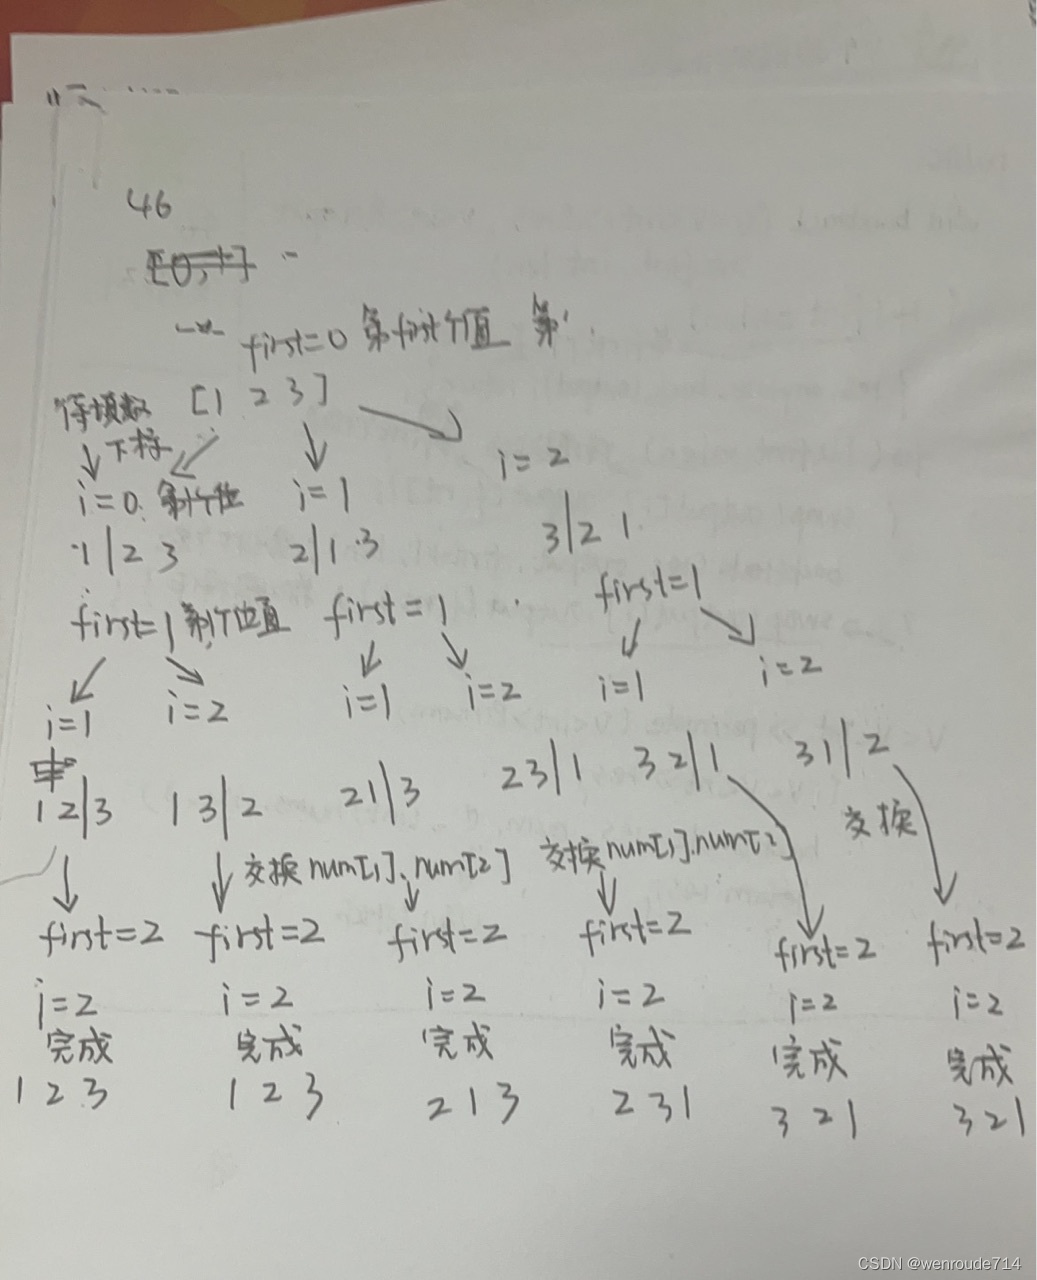 46
first=0 第first个值 第
待填数 [1 2 3]
下标
i=0 第1个值 i=1 i=2
1|2 3 2|1 3 3|2 1
first=1 第1个位置 first=1 first=1
i=1 i=2 i=1 i=2 i=1 i=2
1 2|3 1 3|2 2 1|3 2 3|1 3 2|1 3 1|2
交换num[1].num[2] 交换num[1].num[2] 交换
first=2 first=2 first=2 first=2 first=2 first=2
i=2 i=2 i=2 i=2 i=2 i=2
完成 完成 完成 完成 完成 完成
1 2 3 1 2 3 2 1 3 2 3 1 3 2 1 3 2 1
CSDN @wenroude714